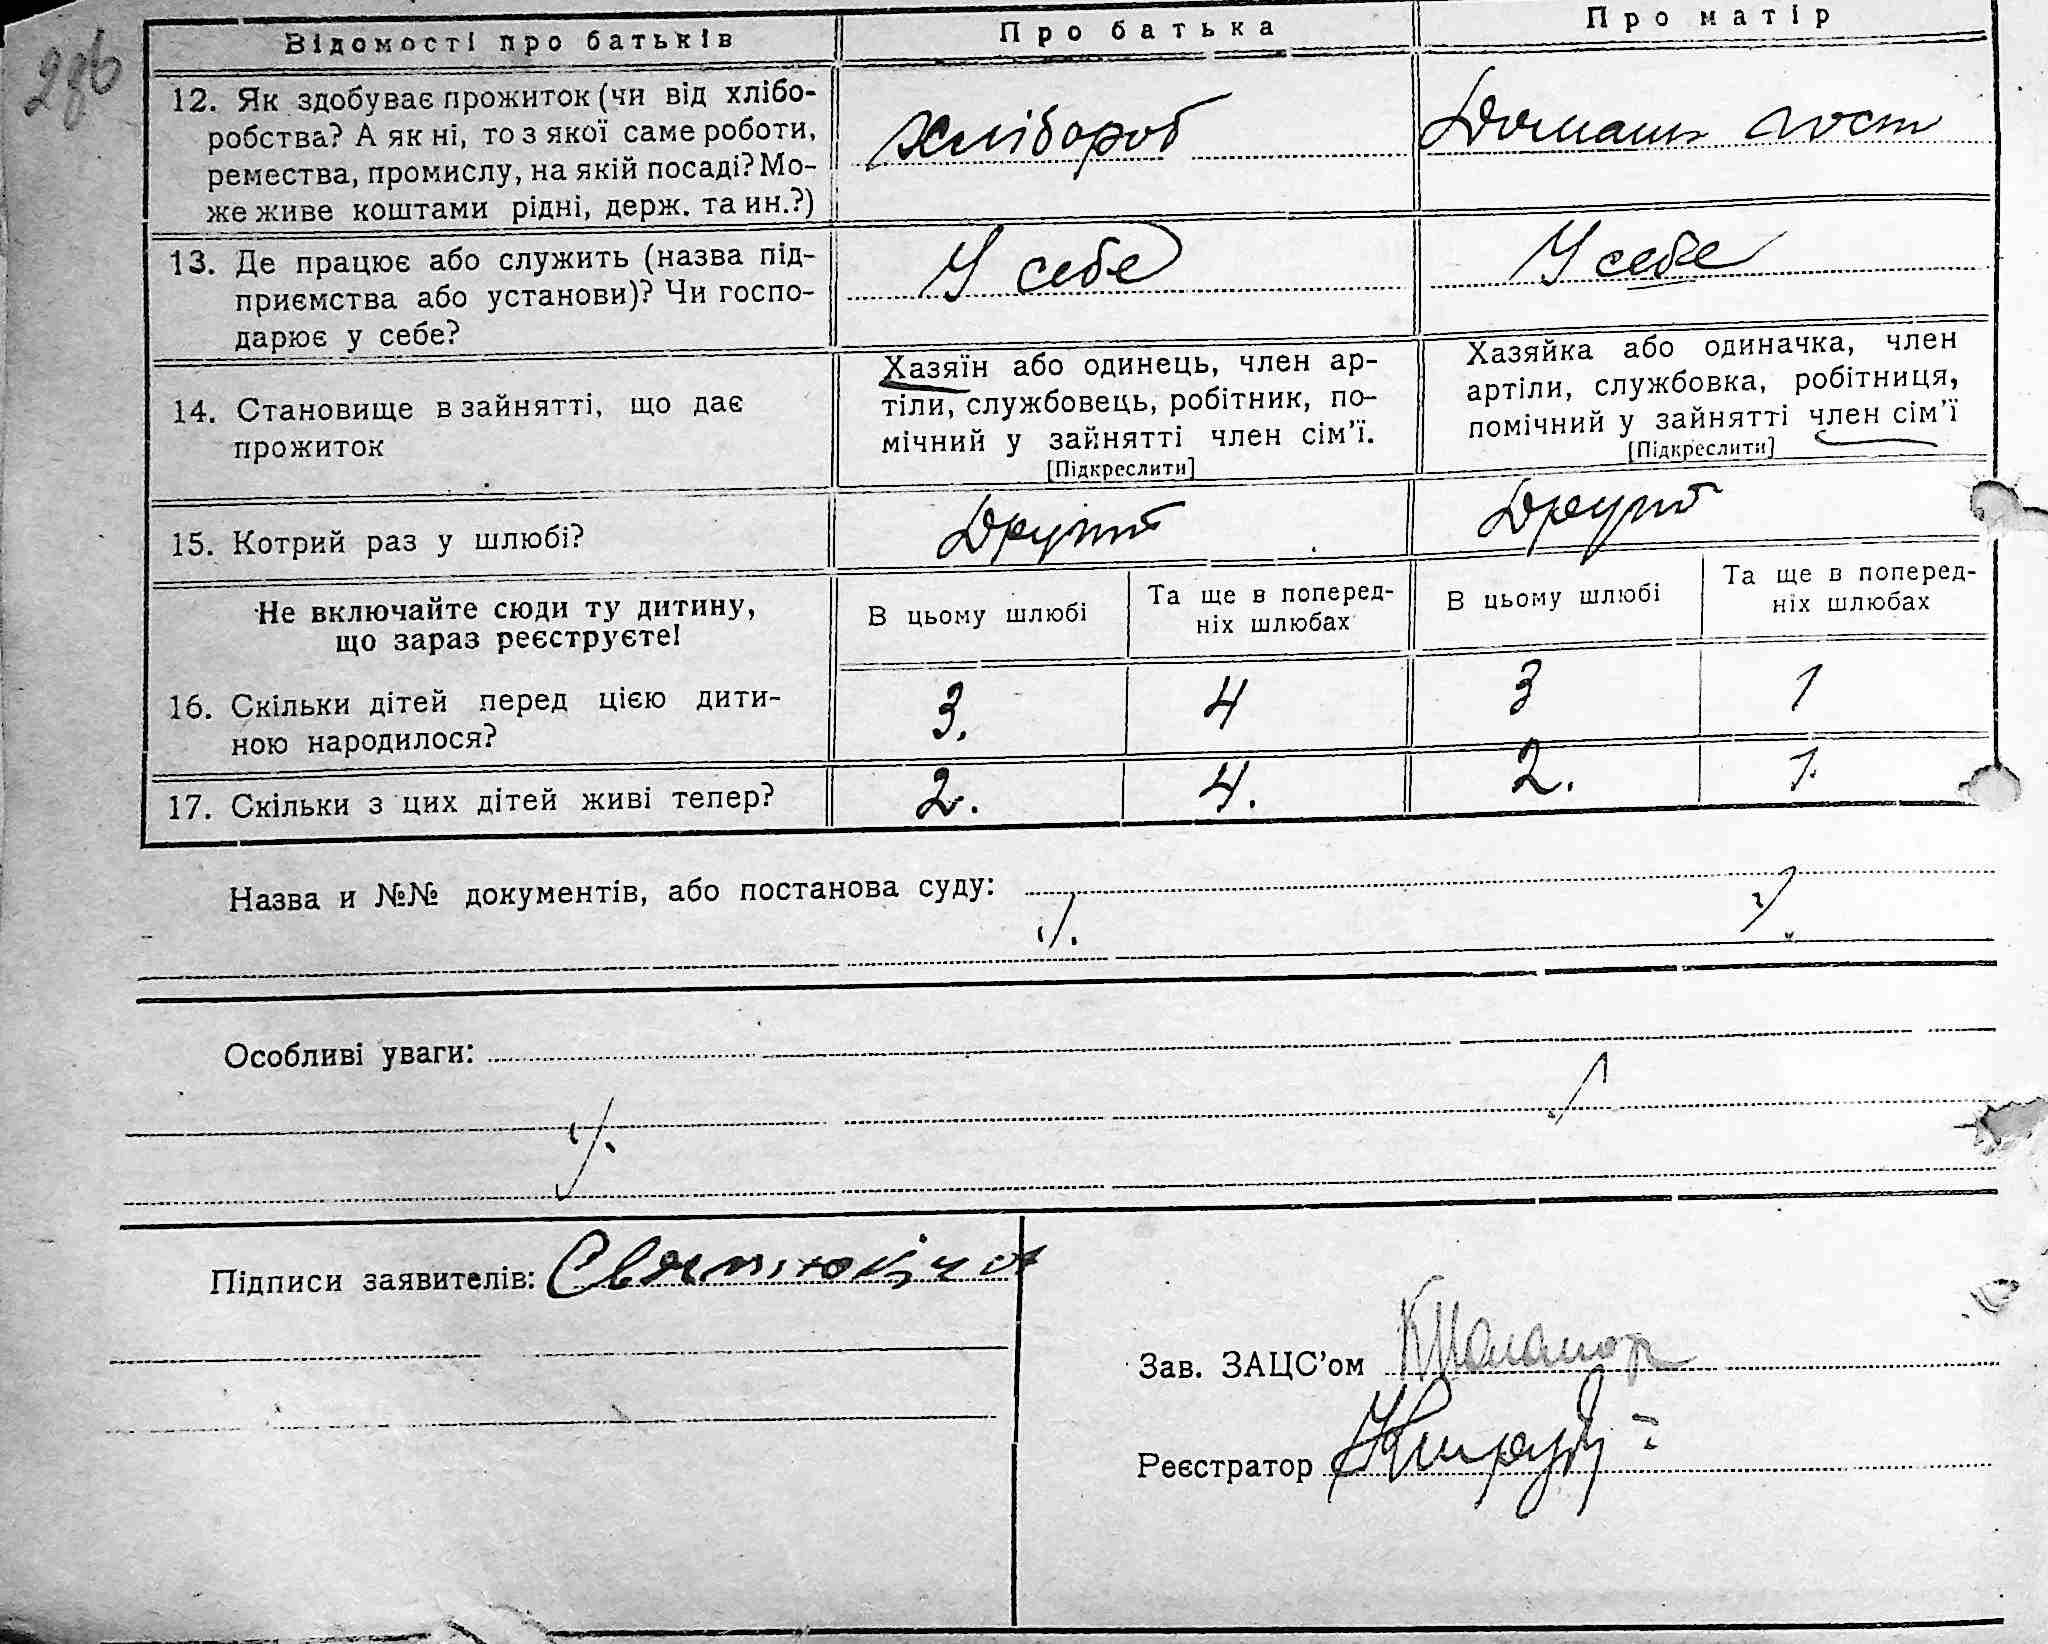 Відомості про батьків
Про батька
Про матір
12. Як здобуває прожиток (чи від хлібо-
робства? А як ні, то з якої саме роботи,
ремества, промислу, на якій посаді? Мо-
же живе коштами рідні, держ. та ин.?)
Хлібороб
Домашн госп
13. Де працює або служить (назва під-
приємства або установи)? Чи госпо-
дарює у себе?
У себе
У себе
14. Становище в зайнятті, що дає
прожиток
Хазяїн або одинець, член ар-
тіли, службовець, робітник, по-
мічний у зайнятті член сім'ї.
[Підкреслити]
Хазяйка або одиначка, член
артіли, службовка, робітниця,
помічний у зайнятті член сім'ї
[Підкреслити]
15. Котрий раз у шлюбі?
Другий
Другий
Не включайте сюди ту дитину,
що зараз реєструєте!
В цьому шлюбі
Та ще в поперед-
ніх шлюбах
В цьому шлюбі
Та ще в поперед-
ніх шлюбах
16. Скільки дітей перед цією дити-
ною народилося?
3.
4
3
1
17. Скільки з цих дітей живі тепер?
2.
4.
2.
1.
Назва и №№ документів, або постанова суду:
Особливі уваги:
Підписи заявителів:
Зав. ЗАЦС'ом
Реєстратор